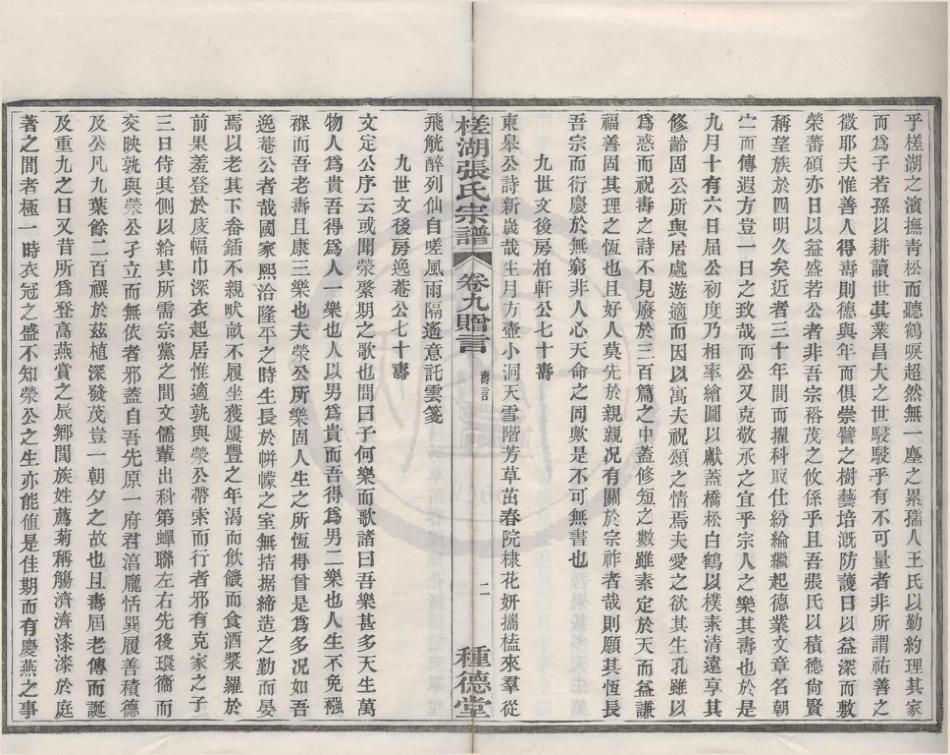 乎槎湖之濱撫青松而聽鶴唳超然無一塵之累孺人王氏以勤約理其家
而爲子若孫以耕讀世其業昌大之世駸駸乎有不可量者非所謂祐善之
徵耶夫惟善人得壽則德與年而俱崇譬之樹藝培溉防護日以益深而敷
榮蕃碩亦日以益盛若公者非吾宗裕茂之攸係乎且吾張氏以積德尙賢
稱望族於四明久矣近者三十年間而擢科取仕紛綸繼起德業文章名朝
而傳遐方豈一日之致哉而公又克敬承之宜乎宗人之樂其壽也於是
九月十有六日届公初度乃相率繪圖以獻蓋橋松白鶴以樸素清遠享其
修齡固公所與居處遊適而因以寓夫祝頌之情焉夫愛之欲其生孔雖以
爲惑而祝壽之詩不見廢於三百篇之中蓋修短之數雖素定於天而益謙
福善固其理之恆也且好人莫先於親親况有關於宗祚者哉則願其恆長
吾宗而衍慶於無窮非人心天命之同歟是不可無書也
九世文後房柏軒公七十壽
東皋公詩新歲哉生月方壺小洞天雪階芳草茁春院棣花妍攜榼來羣從
槎湖張氏宗譜
卷九贈言
壽言
二
種德堂
飛觥醉列仙自嗟風雨隔遙意託雲箋
九世文後房逸菴公七十壽
文定公序云或聞榮棨期之歌也問曰子何樂而歌諸曰吾樂甚多天生萬
物人爲貴吾得爲人一樂也人以男爲貴而吾得爲男二樂也人生不免襁
褓而吾老壽且康三樂也夫榮公所樂固人生之所恆得曾是爲多况如吾
逸菴公者哉國家熙洽隆平之時生長於帡幪之室無拮据締造之勤而晏
焉以老其下畚鍤不親畎畝不履坐獲屢豐之年渴而飲饑而食酒漿羅於
前果羞登於庋幅巾深衣起居惟適孰與榮公帶索而行者邪有克家之子
三日侍其側以給其所需宗黨之間文儒輩出科第蟬聯左右先後環衞而
交映孰與榮公孑立而無依者邪蓋自吾先原一府君湻龐恬巽履善積德
及公凡九葉餘二百禩於茲植深發茂豈一朝夕之故也且壽屆老傳而誕
及重九之日又昔所爲登高燕賞之辰鄉閭族姓薦菊稱觴濟濟漆漆於庭
著之間者極一時衣冠之盛不知榮公之生亦能值是佳期而有慶燕之事